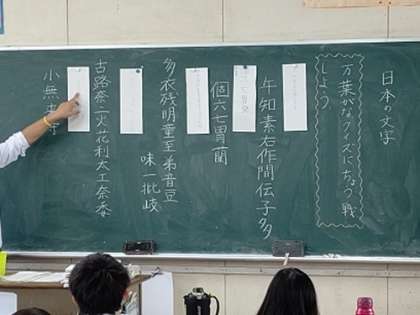 日本の文字
万葉がなクイズにちょう戦
しよう
午知素右作間伝子多
個六七胃蘭
多衣残明童至弟音豆
味一批岐
古路奈二火花利太工奈委
小無